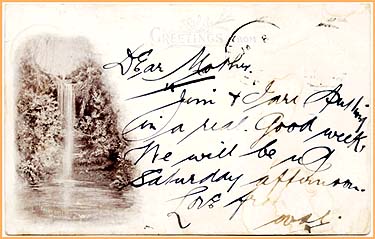 GREETINGS from
Dear Mother.
Jim & I are
in a real good week,
We will be up
Saturday afternoon.
Love